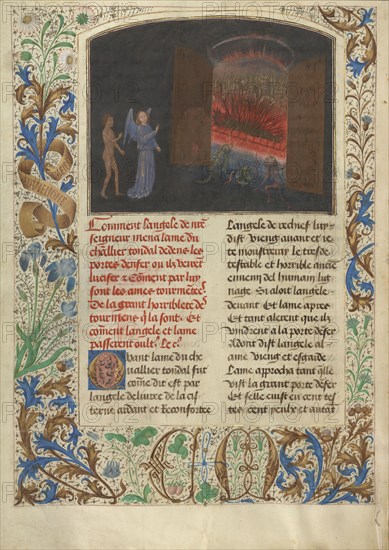 Comment langele de nře
seigneur mena lame du
chľlier tondal dedens les
portes denfer ou ilz virent
lucifer Et cōment par luy
sont les ames tourmētees
De la grant horriblete de
tourmens q̄ la sont Et
cōment langele et lame
passerent oultre
Quant lame du che
uallier tondal fut
cōme dit est par
langele deliure de la cis
terne ardant et Reconfortee
Langele de rechief luy
dist Vieng auant et ie
te monstreray le tresde
testable et horrible ancie
ennemi del humain lig
nage Si aloit langele
deuant Et lame apres
Et tant alerent que ilz
vindrent a la porte denfer
Adont dist langele al
ame Vieng et esgarde
Lame aprocha tant qlle
vist la grant porte denfer
Et selle euist eu cent tes
tes cent